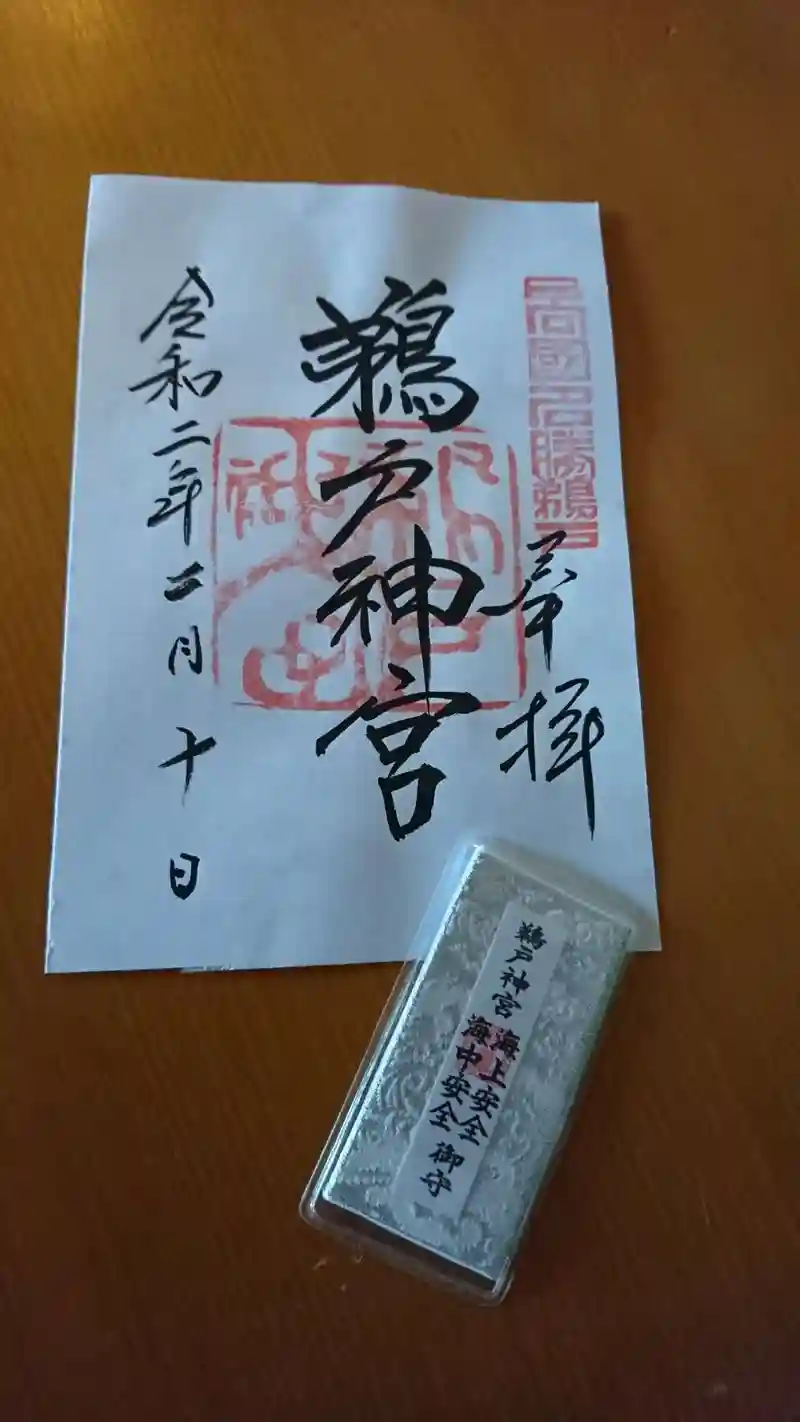 三百國名勝鵜戸
奉拝
鵜戸神宮
令和二年二月十日
鵜戸神宮
海上安全
海中安全
御守